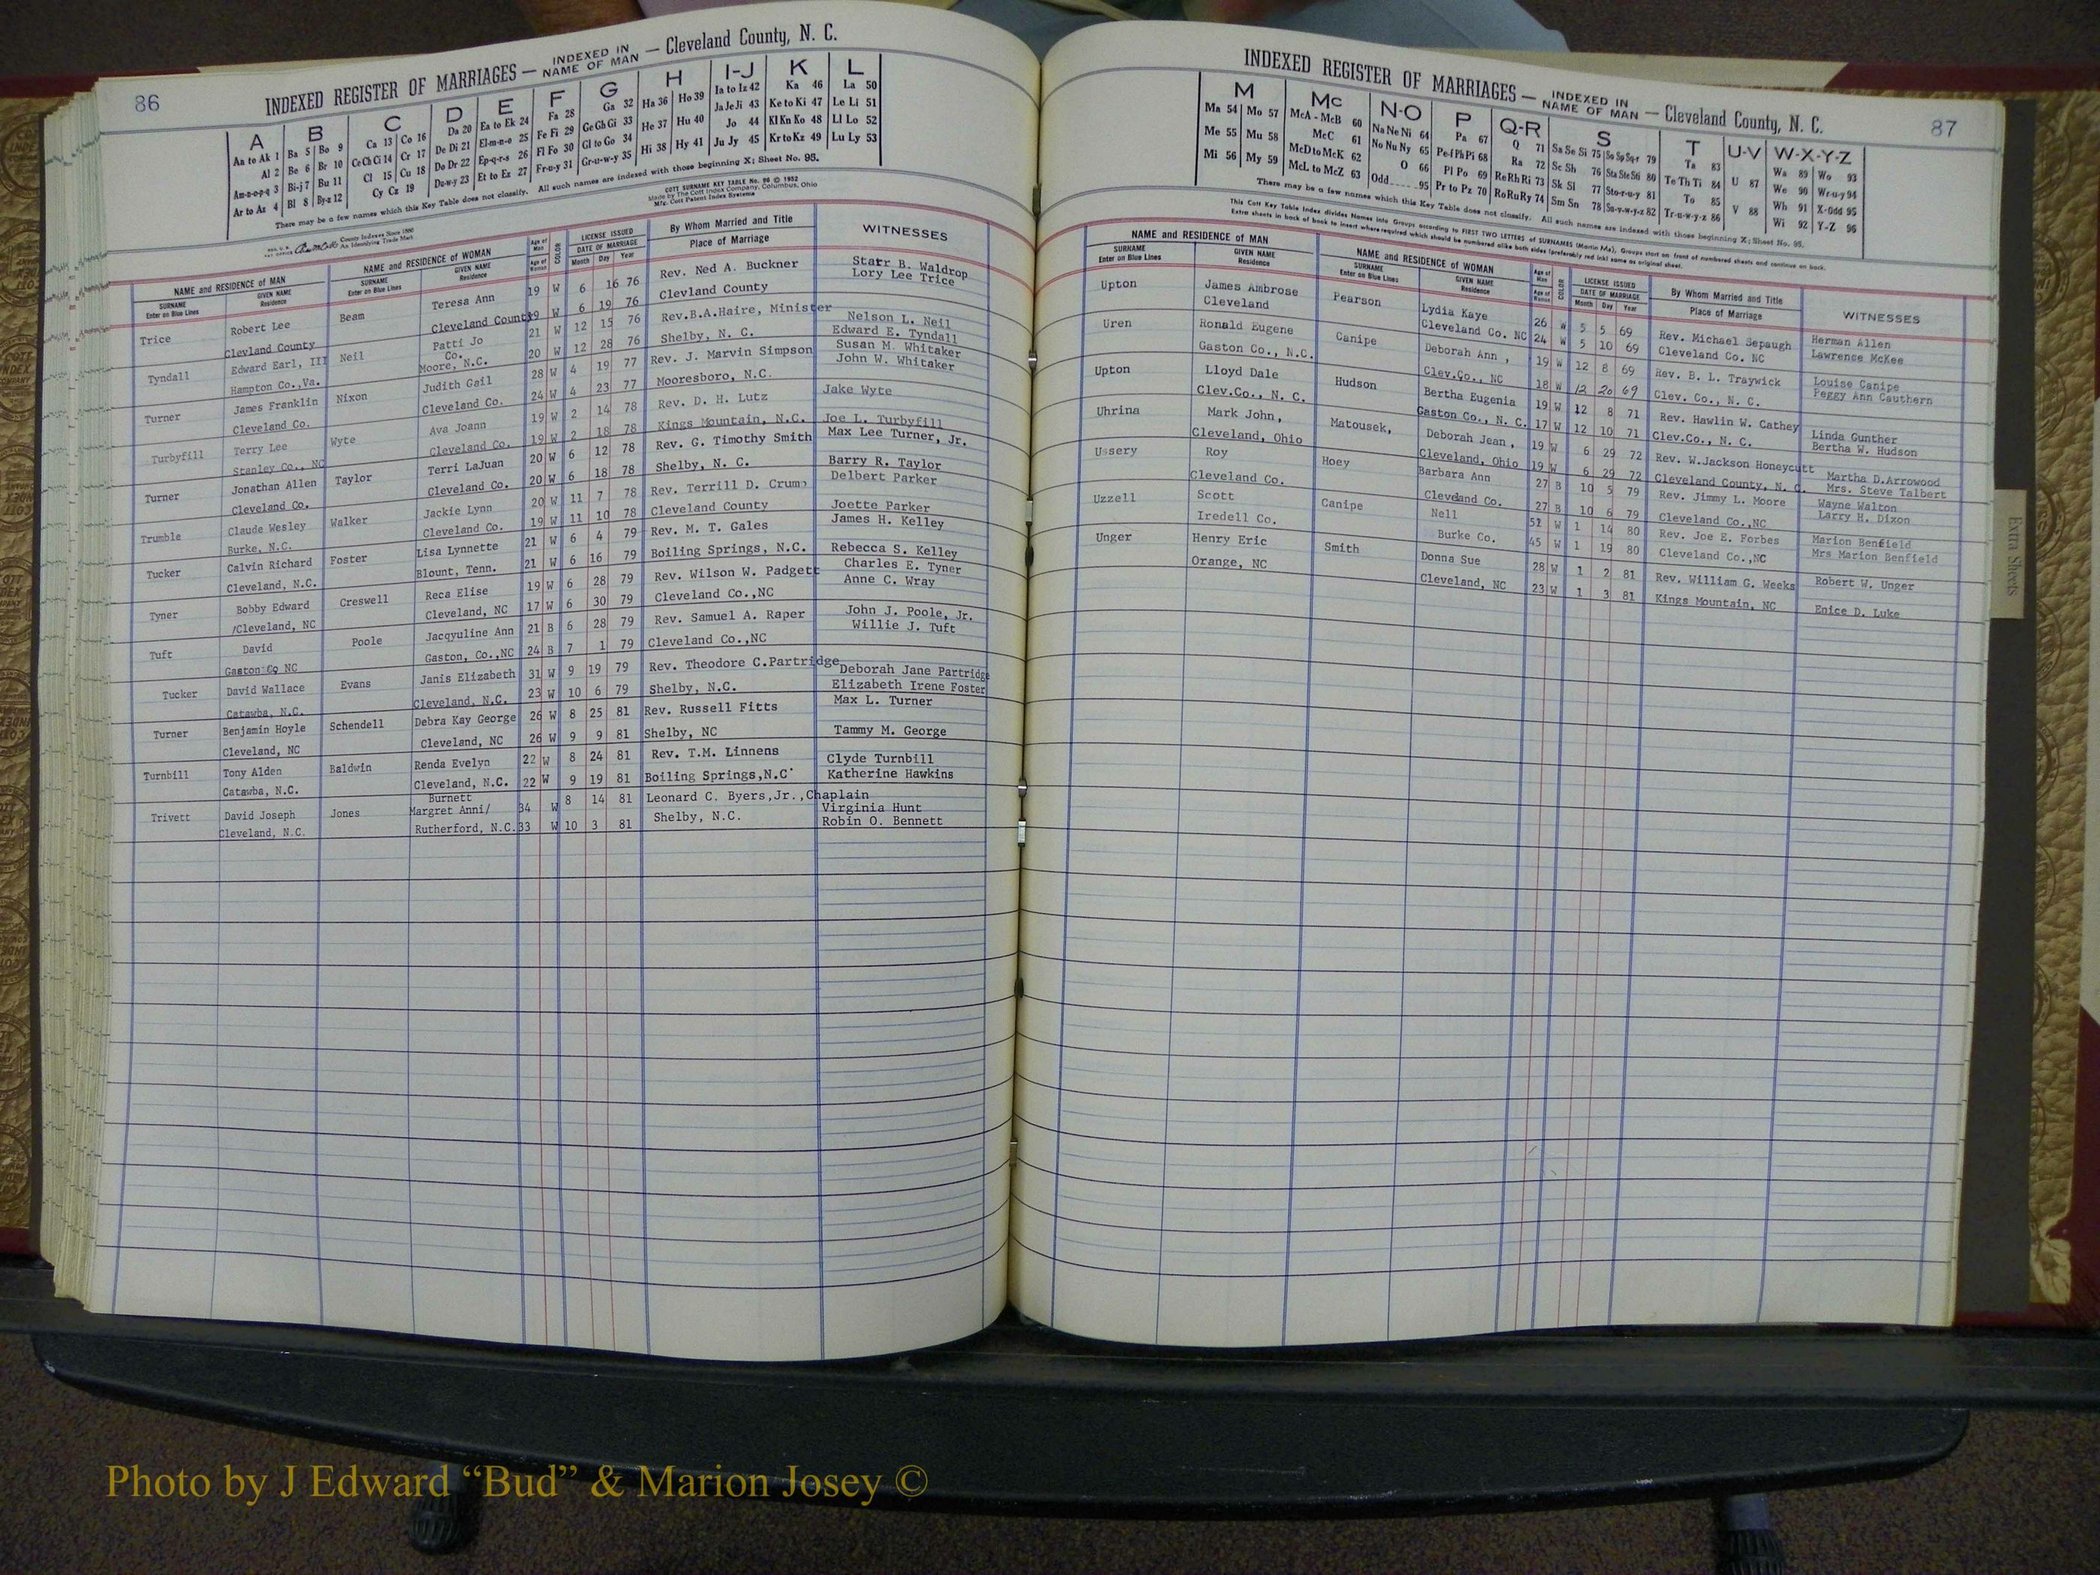 86
INDEXED REGISTER OF MARRIAGES — INDEXED IN NAME OF MAN — Cleveland County, N. C.
A B C D E F G H I-J K L
Aa to Ak 1 Ba 5 Bo 9 Ca 13 Co 16 Da 20 Ea to Ek 24 Fa 28 Ga 32 Ha 36 Ho 39 Ia to Iz 42 Ka 46 La 50
Al 2 Be 6 Br 10 Ce Ch Ci 14 Cr 17 De Di 21 El-m-n-o 25 Fe Fi 29 Ge Gh Gi 33 He 37 Hu 40 Ja Je Ji 43 Ke to Ki 47 Le Li 51
Am-n-o-p-q 3 Bi-j 7 Bu 11 Cl 15 Cu 18 Do Dr 22 Ep-q-r-s 26 Fl Fo 30 Gl to Go 34 Hi 38 Hy 41 Jo 44 Kl Kn Ko 48 Ll Lo 52
Ar to Az 4 Bl 8 By-z 12 Cy Cz 19 Du-w-y 23 Et to Ez 27 Fr-u-y 31 Gr-u-w-y 35 Ju Jy 45 Kr to Kz 49 Lu Ly 53
There may be a few names which this Key Table does not classify. All such names are indexed with those beginning X; Sheet No. 95.
COTT SURNAME KEY TABLE No. 96 © 1952
Made by The Cott Index Company, Columbus, Ohio
Mfg. Cott Patent Index Systems
County Indexes Since 1880
An Identifying Trade Mark
NAME and RESIDENCE of MAN NAME and RESIDENCE of WOMAN Age of Man Age of Woman COLOR LICENSE ISSUED DATE OF MARRIAGE By Whom Married and Title Place of Marriage WITNESSES
SURNAME Enter on Blue Lines GIVEN NAME Residence SURNAME Enter on Blue Lines GIVEN NAME Residence Month Day Year
Trice Robert Lee Beam Teresa Ann 19 W 6 16 76 Rev. Ned A. Buckner Starr B. Waldrop
Clevland County Cleveland County 19 W 6 19 76 Clevland County Lory Lee Trice
Tyndall Edward Earl, III Neil Patti Jo 21 W 12 15 76 Rev.B.A.Haire, Minister Nelson L. Neil
Hampton Co.,Va. Co. Moore, N.C. 20 W 12 28 76 Shelby, N. C. Edward E. Tyndall
Turner James Franklin Nixon Judith Gail 28 W 4 19 77 Rev. J. Marvin Simpson Susan M. Whitaker
Cleveland Co. Cleveland Co. 24 W 4 23 77 Mooresboro, N.C. John W. Whitaker
Turbyfill Terry Lee Wyte Ava Joann 19 W 2 14 78 Rev. D. H. Lutz Jake Wyte
Stanley Co., NC Cleveland Co. 19 W 2 18 78 Kings Mountain, N.C. Joe L. Turbyfill
Turner Jonathan Allen Taylor Terri LaJuan 20 W 6 12 78 Rev. G. Timothy Smith Max Lee Turner, Jr.
Cleveland Co. Cleveland Co. 20 W 6 18 78 Shelby, N. C. Barry R. Taylor
Trumble Claude Wesley Walker Jackie Lynn 20 W 11 7 78 Rev. Terrill D. Crump Delbert Parker
Burke, N.C. Cleveland Co. 19 W 11 10 78 Cleveland County Joette Parker
Tucker Calvin Richard Foster Lisa Lynnette 21 W 6 4 79 Rev. M. T. Gales James H. Kelley
Cleveland, N.C. Blount, Tenn. 21 W 6 16 79 Boiling Springs, N.C. Rebecca S. Kelley
Tyner Bobby Edward Creswell Reca Elise 19 W 6 28 79 Rev. Wilson W. Padgett Charles E. Tyner
/Cleveland, NC Cleveland, NC 17 W 6 30 79 Cleveland Co.,NC Anne C. Wray
Tuft David Poole Jacqyuline Ann 21 B 6 28 79 Rev. Samuel A. Raper John J. Poole, Jr.
Gaston Co NC Gaston, Co.,NC 24 B 7 1 79 Cleveland Co.,NC Willie J. Tuft
Tucker David Wallace Evans Janis Elizabeth 31 W 9 19 79 Rev. Theodore C.Partridge Deborah Jane Partridge
Catawba, N.C. Cleveland, N.C. 23 W 10 6 79 Shelby, N.C. Elizabeth Irene Foster
Turner Benjamin Hoyle Schendell Debra Kay George 26 W 8 25 81 Rev. Russell Fitts Max L. Turner
Cleveland, NC Cleveland, NC 26 W 9 9 81 Shelby, NC Tammy M. George
Turnbill Tony Alden Baldwin Renda Evelyn 22 W 8 24 81 Rev. T.M. Linnens Clyde Turnbill
Catawba, N.C. Cleveland, N.C. 22 W 9 19 81 Boiling Springs,N.C Katherine Hawkins
Trivett David Joseph Jones Burnett Margret Anni/ 34 W 8 14 81 Leonard C. Byers,Jr.,Chaplain Virginia Hunt
Cleveland, N.C. Rutherford, N.C. 33 W 10 3 81 Shelby, N.C. Robin O. Bennett
87
INDEXED REGISTER OF MARRIAGES — INDEXED IN NAME OF MAN — Cleveland County, N. C.
M Mc N-O P Q-R S T U-V W-X-Y-Z
Ma 54 Mo 57 McA - McB 60 Na Ne Ni 64 Pa 67 Q 71 Sa Se Si 75 So Sp Sq-r 79 Ta 83 Wa 89 Wo 93
Me 55 Mu 58 McC 61 No Nu Ny 65 Pe-f Ph Pi 68 Ra 72 Sc Sh 76 Sta Ste Sti 80 Te Th Ti 84 U 87 We 90 Wr-u-y 94
Mi 56 My 59 McD to McK 62 O 66 Pl Po 69 Re Rh Ri 73 Sk Sl 77 Sto-r-u-y 81 To 85 Wh 91 X-Odd 95
McL to McZ 63 Odd 95 Pr to Pz 70 Ro Ru Ry 74 Sm Sn 78 Su-v-w-y-z 82 Tr-u-w-y-z 86 V 88 Wi 92 Y-Z 96
There may be a few names which this Key Table does not classify. All such names are indexed with those beginning X; Sheet No. 95.
This Cott Key Table Index divides Names into Groups according to FIRST TWO LETTERS of SURNAMES (Martin Ma), Groups start on front of numbered sheets and continue on back.
Extra sheets in back of book to insert where required which should be numbered alike both sides (preferably red ink) same as original sheet.
NAME and RESIDENCE OF MAN NAME and RESIDENCE OF WOMAN Age of Man Age of Woman COLOR LICENSE ISSUED DATE OF MARRIAGE By Whom Married and Title Place of Marriage WITNESSES
SURNAME Enter on Blue Lines GIVEN NAME Residence SURNAME Enter on Blue Lines GIVEN NAME Residence Month Day Year
Upton James Ambrose Pearson Lydia Kaye 26 W 5 5 69 Rev. Michael Sepaugh Herman Allen
Cleveland Cleveland Co. NC 24 W 5 10 69 Cleveland Co. NC Lawrence McKee
Uren Ronald Eugene Canipe Deborah Ann , 19 W 12 8 69 Rev. B. L. Traywick Louise Canipe
Gaston Co., N.C. Clev.Co., NC 18 W 12 20 69 Clev. Co., N. C. Peggy Ann Cauthern
Upton Lloyd Dale Hudson Bertha Eugenia 19 W 12 8 71 Rev. Hawlin W. Cathey Linda Gunther
Clev.Co., N. C. Gaston Co., N. C. 17 W 12 10 71 Clev.Co., N. C. Bertha W. Hudson
Uhrina Mark John, Matousek, Deborah Jean , 19 W 6 29 72 Rev. W.Jackson Honeycutt Martha D.Arrowood
Cleveland, Ohio Cleveland, Ohio 19 W 6 29 72 Cleveland County, N. C. Mrs. Steve Talbert
Ussery Roy Hoey Barbara Ann 27 B 10 5 79 Rev. Jimmy L. Moore Wayne Walton
Cleveland Co. Cleveland Co. 27 B 10 6 79 Cleveland Co.,NC Larry H. Dixon
Uzzell Scott Canipe Nell 52 W 1 14 80 Rev. Joe E. Forbes Marion Benfield
Iredell Co. Burke Co. 45 W 1 19 80 Cleveland Co.,NC Mrs Marion Benfield
Unger Henry Eric Smith Donna Sue 28 W 1 2 81 Rev. William G. Weeks Robert W. Unger
Orange, NC Cleveland, NC 23 W 1 3 81 Kings Mountain, NC Enice D. Luke
Extra Sheets
Photo by J Edward “Bud” & Marion Josey ©